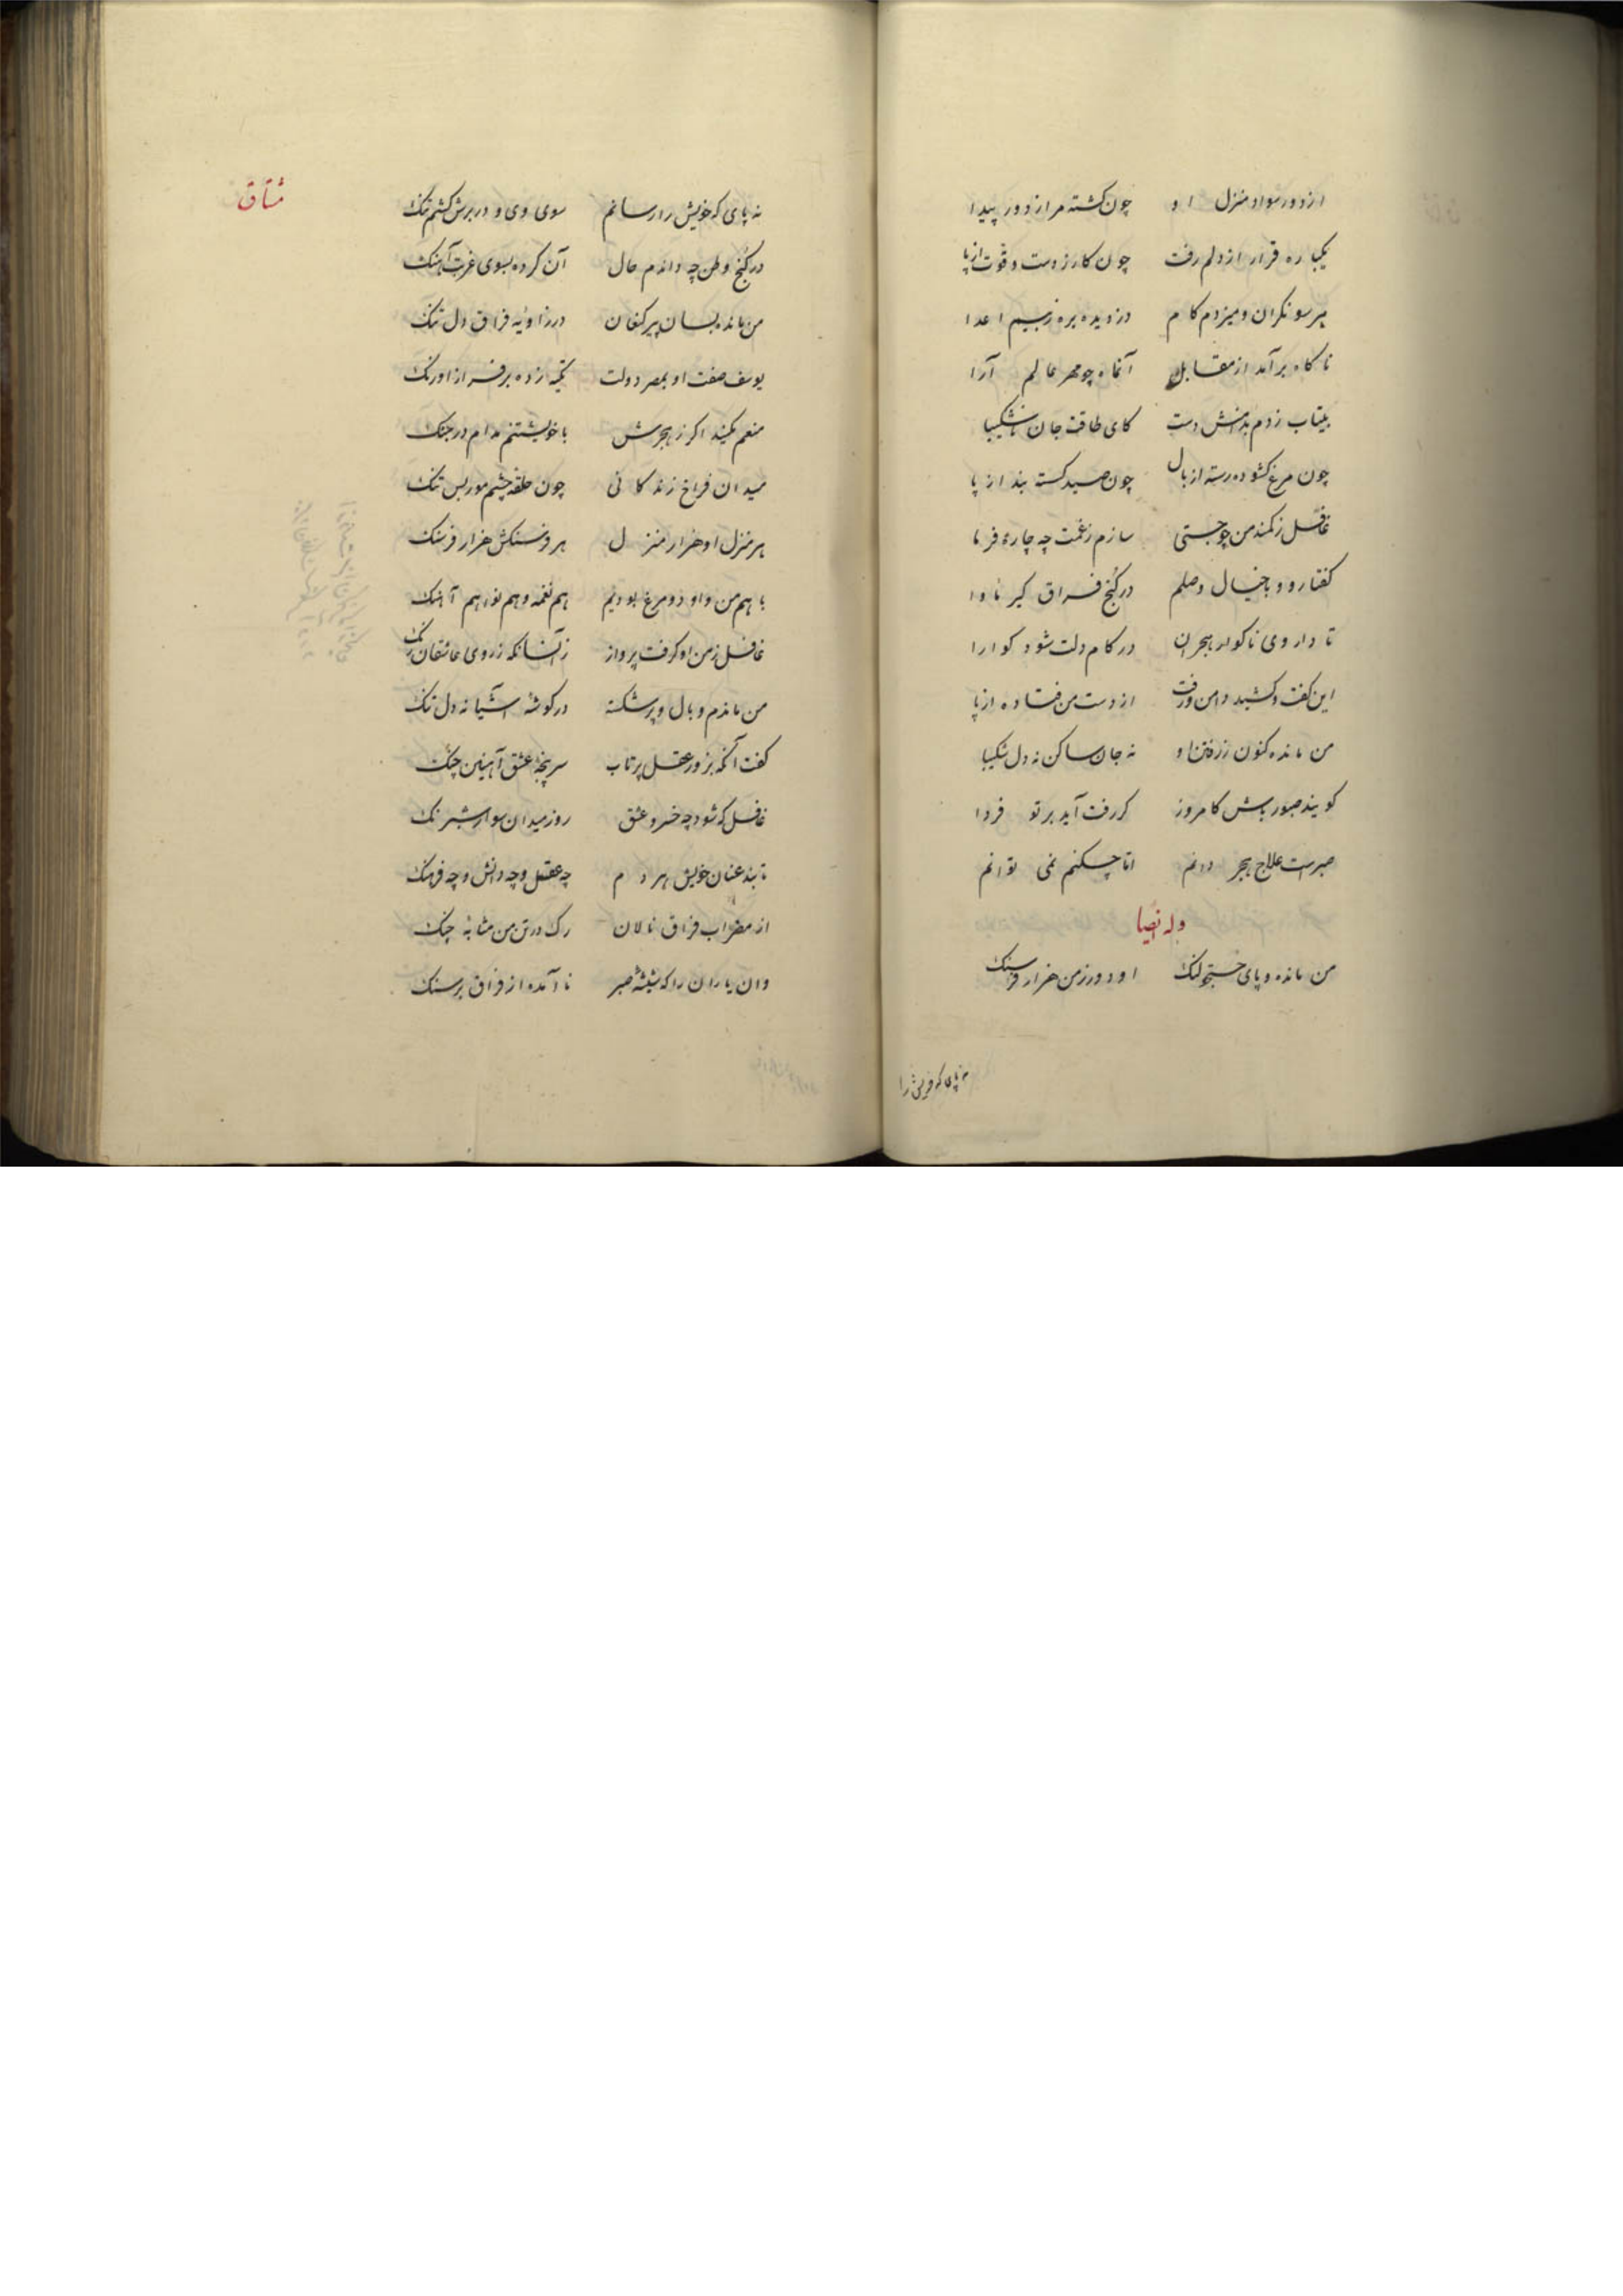 از دور سواد منزل او چون گشته مرا ز دور پیدا
یکباره قرار از دلم رفت چون کار ز دست و قوت از پا
هر سو نگران و میزدم کام دزدیده بره ز بیم اعدا
ناکاه برآمد از مقابل آنماه چو مهر عالم آرا
بیتاب زدم بدامنش دست کای طاقت جان ناشکیبا
چون مرغ کشوده رسته از بال چون صید کسسته بند از پا
غافل ز کمند من چو جستی سازم ز غمت چه چاره فرما
کفتا رو و با خیال وصلم در کنج فراق کیر ماوا
تا داروی ناکوار هجران در کام دلت شود کوارا
این کفت و کشید دامن و رفت از دست من فتاده از پا
من مانده کنون ز رفتن او نه جان ساکن نه دل شکیبا
کویند صبور باش کامروز کر رفت آید بر تو فردا
صبرست علاج هجر دانم اما چکنم نمی توانم
وله ایضا
من مانده و پای جستجو لنک او دور ز من هزار فرسنک
نه پای که خویش را
مشتاق
نه پای که خویش را رسانم سوی وی و در برش کشم تنک
در کنج وطن چه داندم حال آن کرده بسوی غربت آهنک
من مانده بسان پیر کنعان در زاویه فراق دل تنک
یوسف صفت او بمصر دولت تکیه زده بر فراز اورنک
منعم مکنید اکر ز هجرش با خویشتنم مدام در جنک
میدان فراخ زندکانی چون حلقه چشم مور بس تنک
هر منزل او هزار منزل هر فرسنکش هزار فرسنک
با هم من و او دو مرغ بودیم هم نغمه و هم نوا هم آهنک
غافل ز من او کرفت پرواز زآنسانکه ز روی عاشقان رنک
من ماندم و بال و پر شکسته در کوشه آشیانه دل تنک
کفت آنکه بزور عقل برتاب سرپنجه عشق آهنین چنک
غافل که شود چه خسرو عشق روز میدان سوار شبرنک
تابند عنان خویش هر دم چه عقل و چه دانش و چه فرهنک
از مضراب فراق نالان رک در تن من مثابه چنک
وان یاران را که شیشه صبر ناآمده از فراق بر سنک